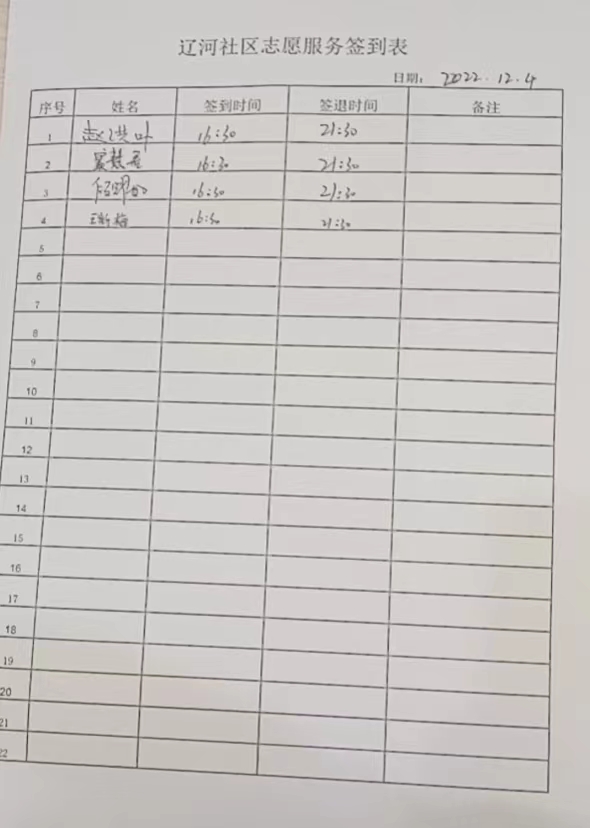 辽河社区志愿服务签到表
日期: 2022.12.4
序号 姓名 签到时间 签退时间 备注
1 赵洪叶 16:30 21:30
2 16:30 21:30
3 16:30 21:30
4 王新梅 16:30 21:30
5
6
7
8
9
10
11
12
13
14
15
16
17
18
19
20
21
22